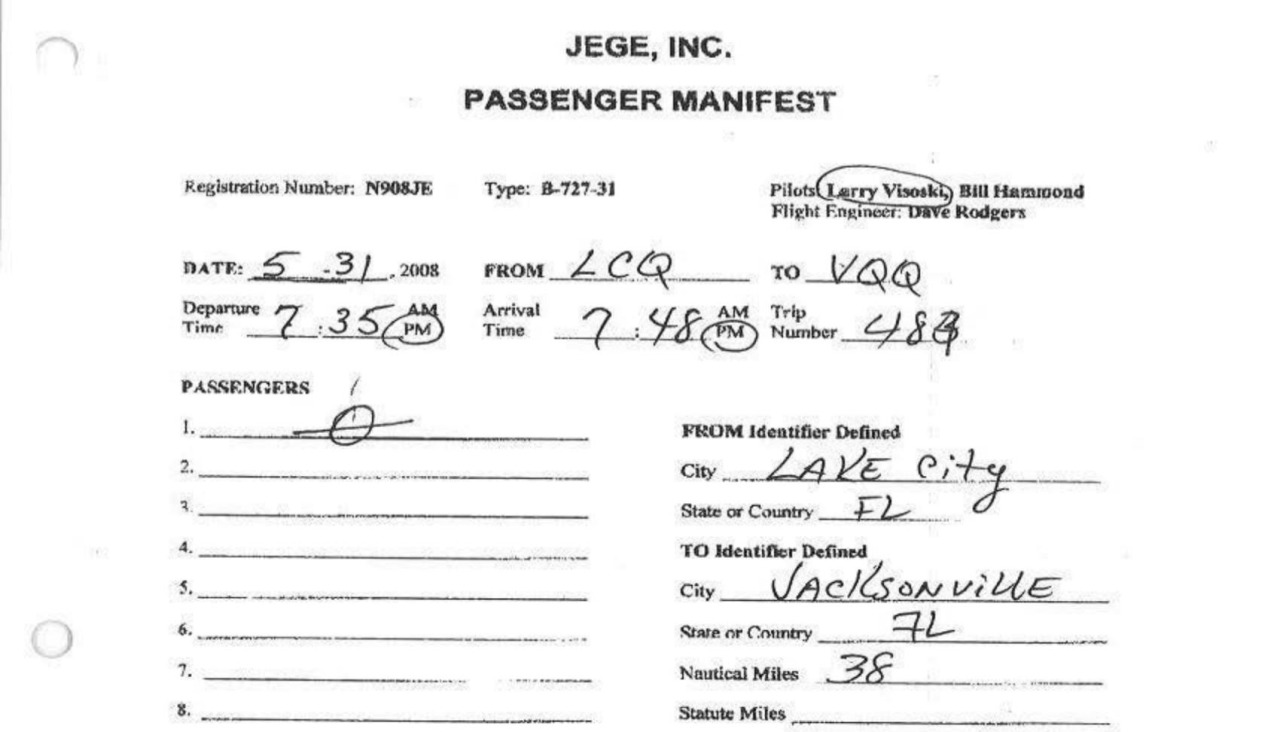 JEGE, INC.
PASSENGER MANIFEST
Registration Number: N908JE Type: B-727-31 Pilots: Larry Visoski, Bill Hammond
Flight Engineer: Dave Rodgers
DATE: 5 - 31, 2008 FROM LCQ TO VQQ
Departure Time 7:35 AM PM Arrival Time 7:48 AM PM Trip Number
PASSENGERS
1. 0
2.
3.
4.
5.
6.
7.
8.
FROM Identifier Defined
City LAKE City
State or Country FL
TO Identifier Defined
City JACKSONVILLE
State or Country FL
Nautical Miles 38
Statute Miles